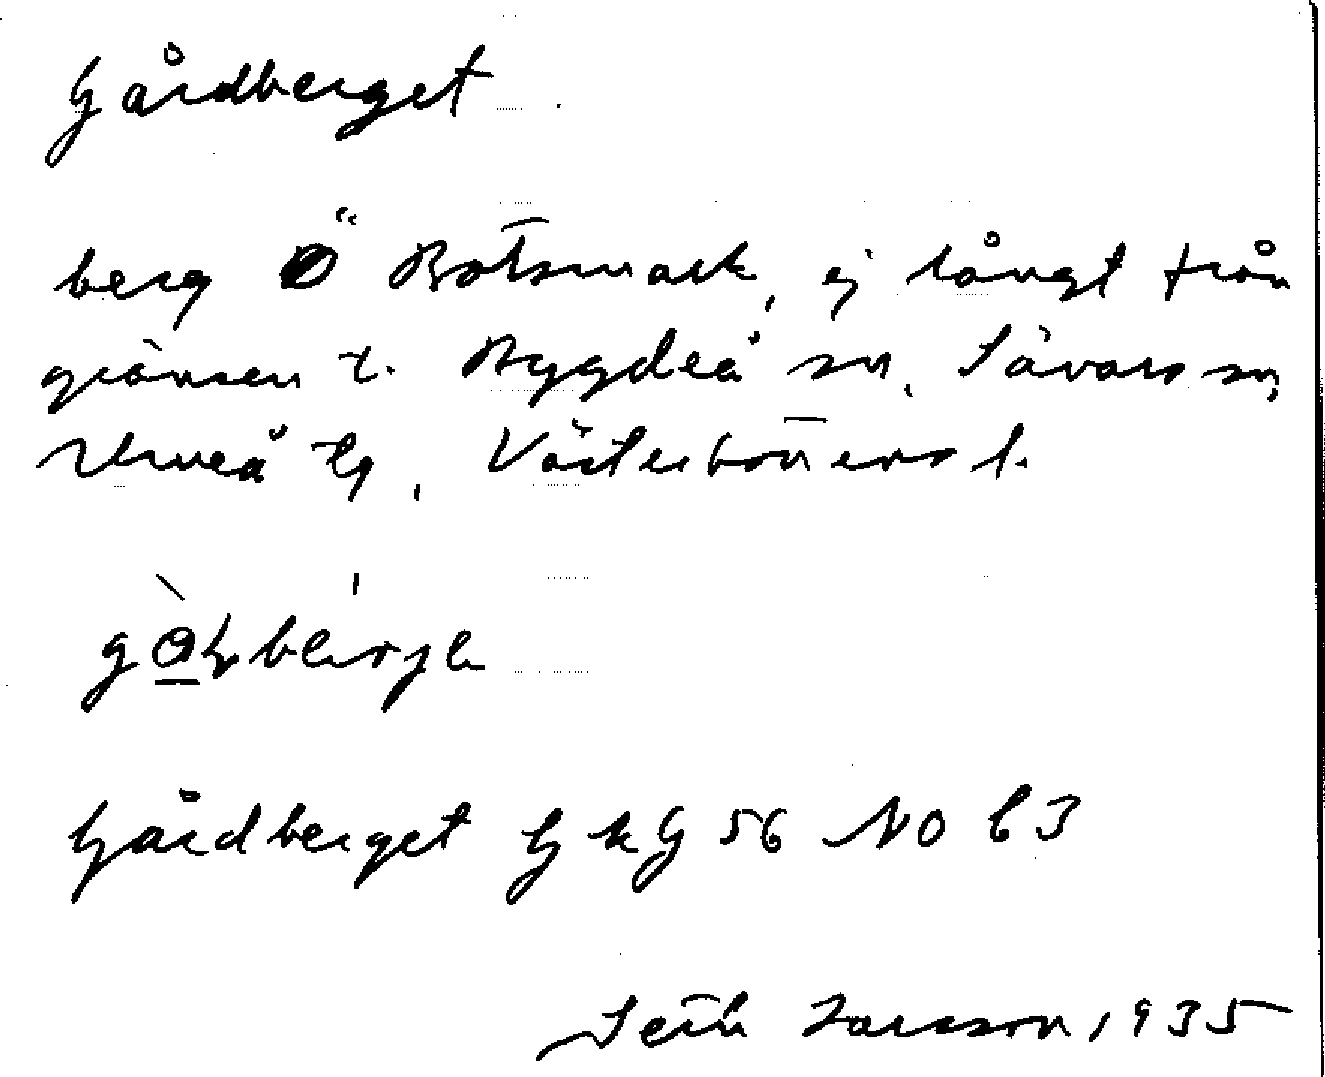 Gårdberget
berg Ö Botsmark, ej långt från
gränsen t. Bygdeå sn, Sävars sn,
Umeå tg, Västerbottens l.
Gårdberget GkG 56 NO C3
Seth Larsson, 1935